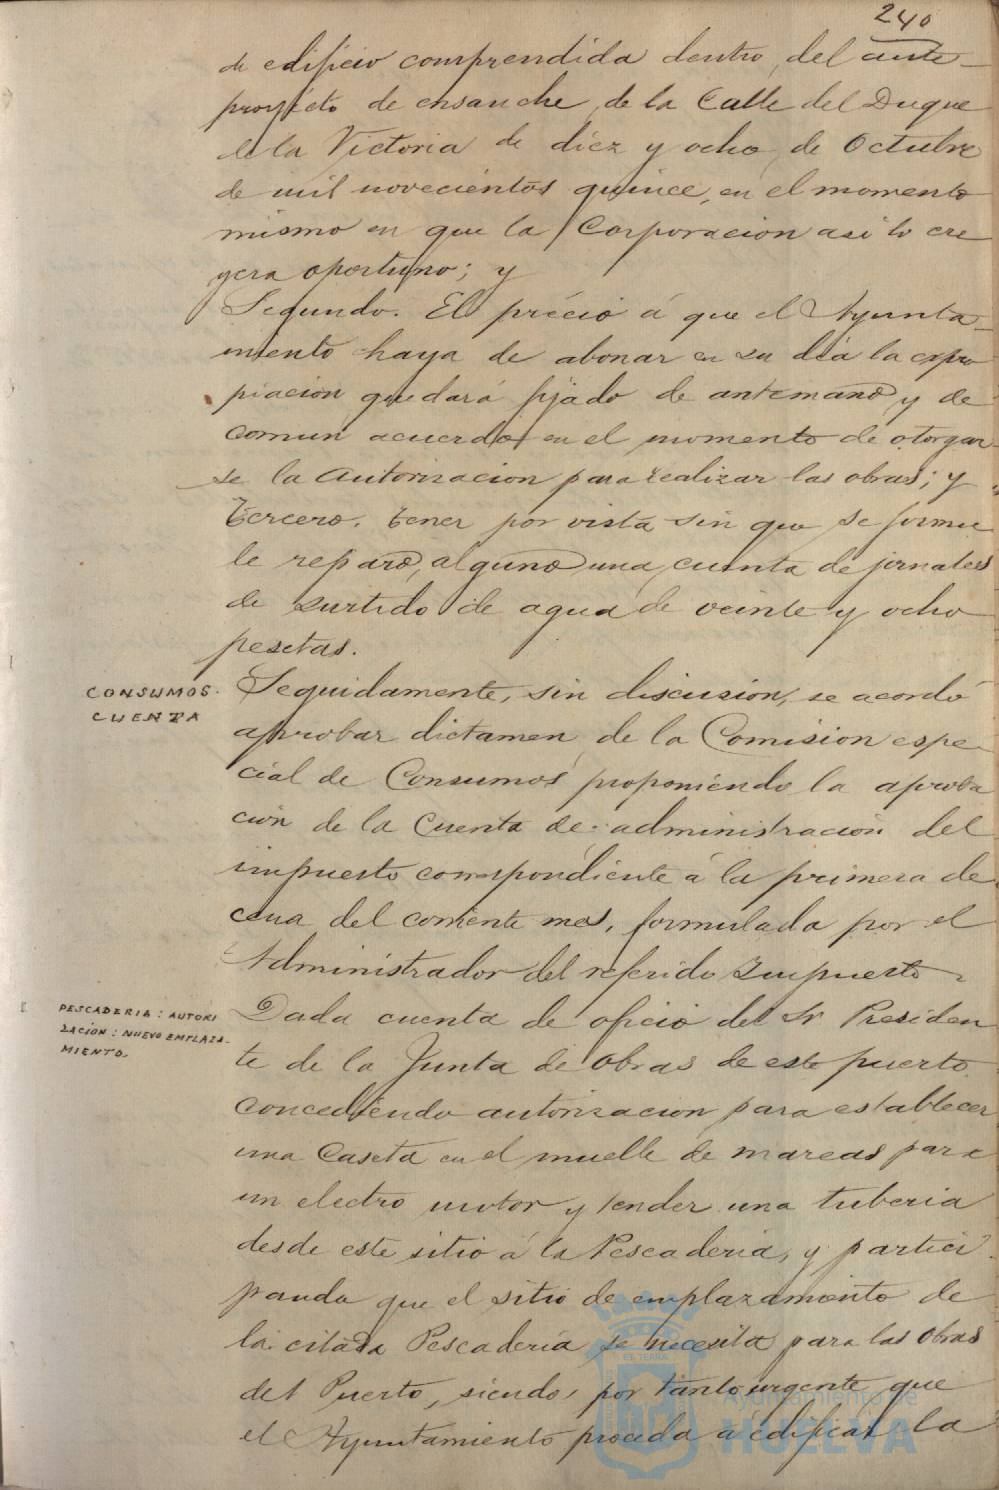 240
de edificio comprendida dentro del ante-
proyécto de ensanche de la Calle del Duque
de la Victoria de diéz y ocho de Octubre
de mil novecientos quince, en el momento
mismo en que la Corporacion asi lo cre
yera oportuno; y
Segundo. El précio á que el Ayunta-
miento haya de abonar en su dia la expro
piacion quedará fijado de antemano y de
comun acuerdo en el momento de otorgar-
se la autorizacion para realizar las obras; y
Tercero. Tener por vista sin que se formu
le reparo alguno una cuenta de jornales
de surtido de agua de veinte y ocho
pesetas.
CONSUMOS.
CUENTA
Seguidamente, sin discusion, se acordó
aprobar dictamen de la Comision espe-
cial de Consumos proponiendo la aproba
cion de la Cuenta de administracion del
impuesto correspondiente á la primera de
cena del corriente mes, formulada por el
Administrador del referido Impuesto.
PESCADERIA: AUTORI
ZACION: NUEVO EMPLAZA-
MIENTO.
Dada cuenta de oficio del Sr Presiden
te de la Junta de Obras de este puerto
concediendo autorizacion para establecer
una Caseta en el muelle de mareas para
un electro motor y tender una tuberia
desde este sitio á la Pescaderia, y partici
pando que el sitio de emplazamiento de
la citada Pescaderia se necesita para las Obras
del Puerto, siendo, por tanto urgente que
el Ayuntamiento proceda á edificar la
Ayuntamiento de
HUELVA